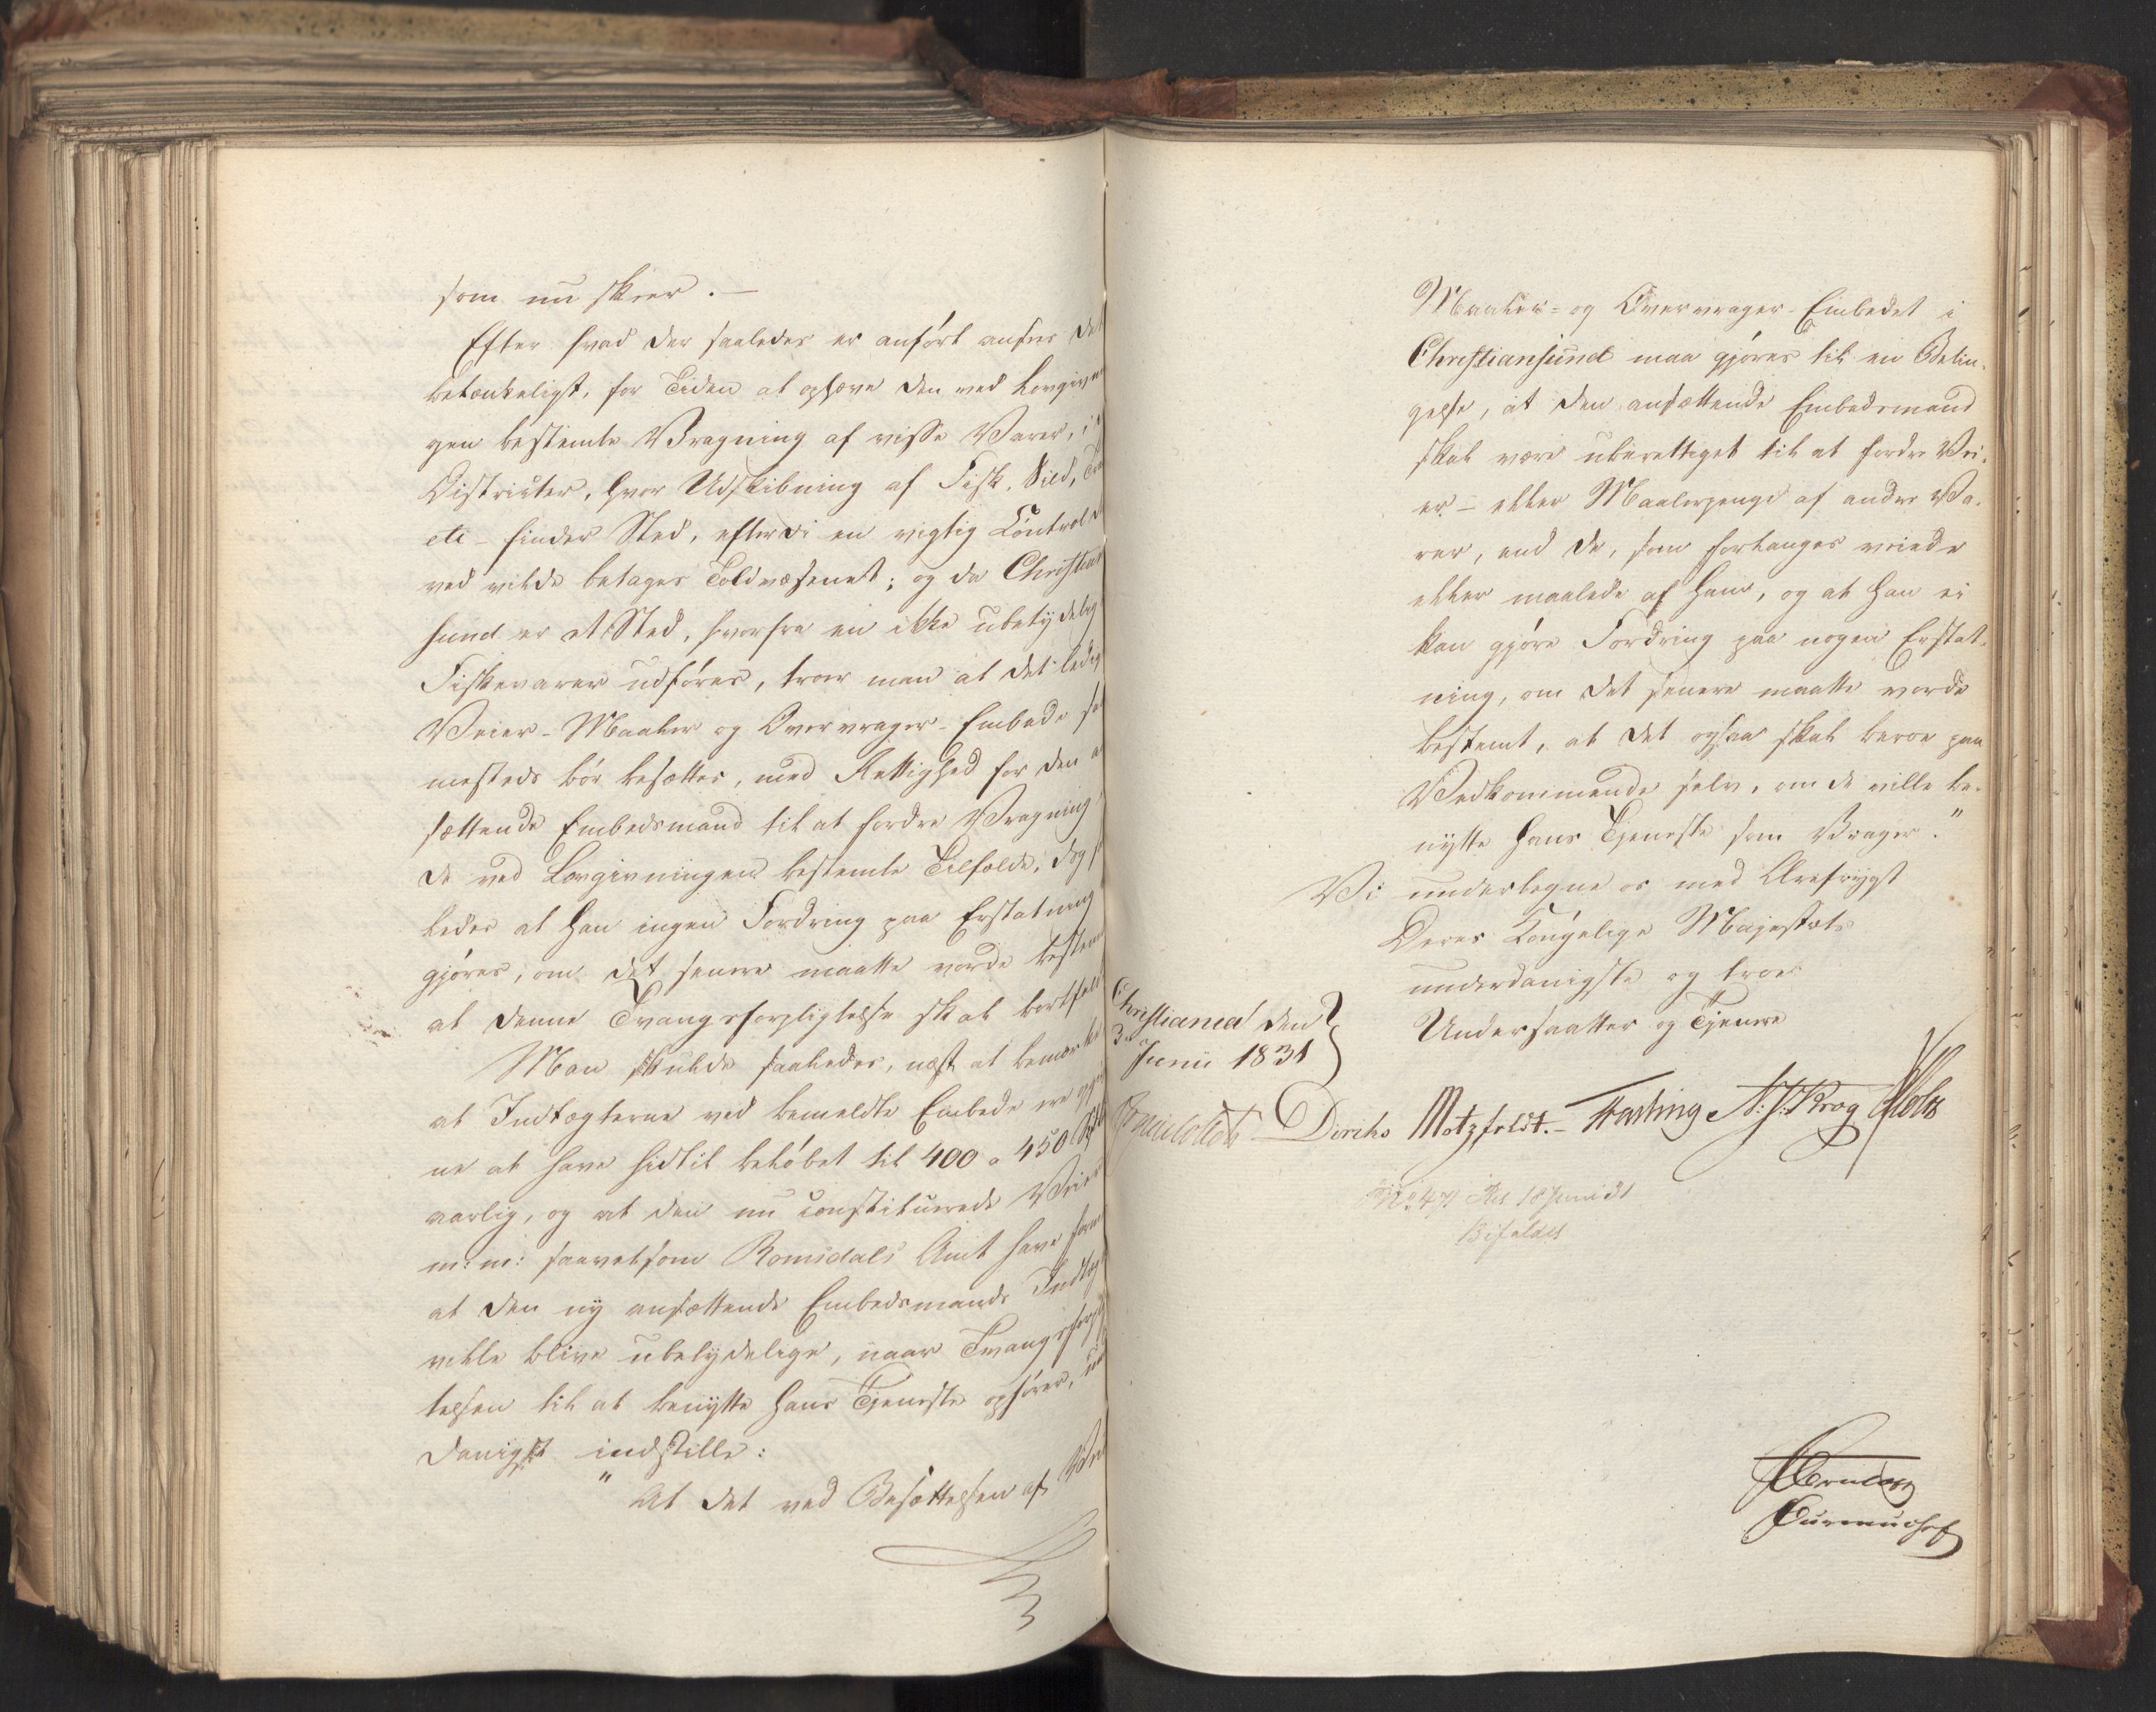 som nu skeer. —
Efter hvad der saaledes er anført ansees det
betænkeligt, for Tiden at ophæve den ved Lovgivnin
gen bestemte Vragning af visse Varer, i
Districter, hvor Udskibning af Fisk, Sild,
etc - finder Sted, efterdi en vigtig Control
ved vilde betages Toldvæsenet; og da Christian
sund er et Sted, hvorfra en ikke ubetydelig
Fiskevarer udføres, troer man at det ledige
Veier- Maaler og Overvrager-Embede sa
mesteds bør besættes, med Rettighed for den a
sættende Embedsmand til at fordre Vragning
de ved Lovgivningen bestemte Tilfælde, dog s
ledes at han ingen Fordring paa Erstatning
gjøres, om det senere maatte vorde bestem
at denne Tvangsforpligtelse skal bortfald
Man skulde saaledes, næst at bemærke
at Indtægterne ved bemeldte Embede ere opgiv
ne at have hidtil beløbet til 400 a 450 Spd
aarlig, og at den nu constituerede Veier
m: m: saavelsom Romsdals Amt have form
at den ny ansættende Embedsmands Indtægt
ville blive ubetydelige, naar Tvangsforplig
telsen til at benytte hans Tjeneste ophører, un
danigst indstille:
" At det ved Besættelsen af Vei
Maaler- og Overvrager-Embedet i
Christiansund maa gjøres til en Betin-
gelse, at den ansættende Embedsmand
skal være uberettiget til at fordre Vei-
er - eller Maalerpenge af andre Va-
rer, end de, som forlanges veiede
eller maalede af ham, og at han ei
kan gjøre Fordring paa nogen Erstat-
ning, om det senere maatte vorde
bestemt, at det ogsaa skal beroe paa
Vedkommende selv, om de ville be-
nytte hans Tjeneste som Vrager."
Vi undertegne os med Ærefrygt
Deres Kongelige Majestæts
underdanigste og troe
Undersaatter og Tjenere
Christiania den
3 Junii 1831
Diriks Motzfeldt. - Fasting N: J: Krog Holst
No 47 Res 18 Juni 31
Bifaldes